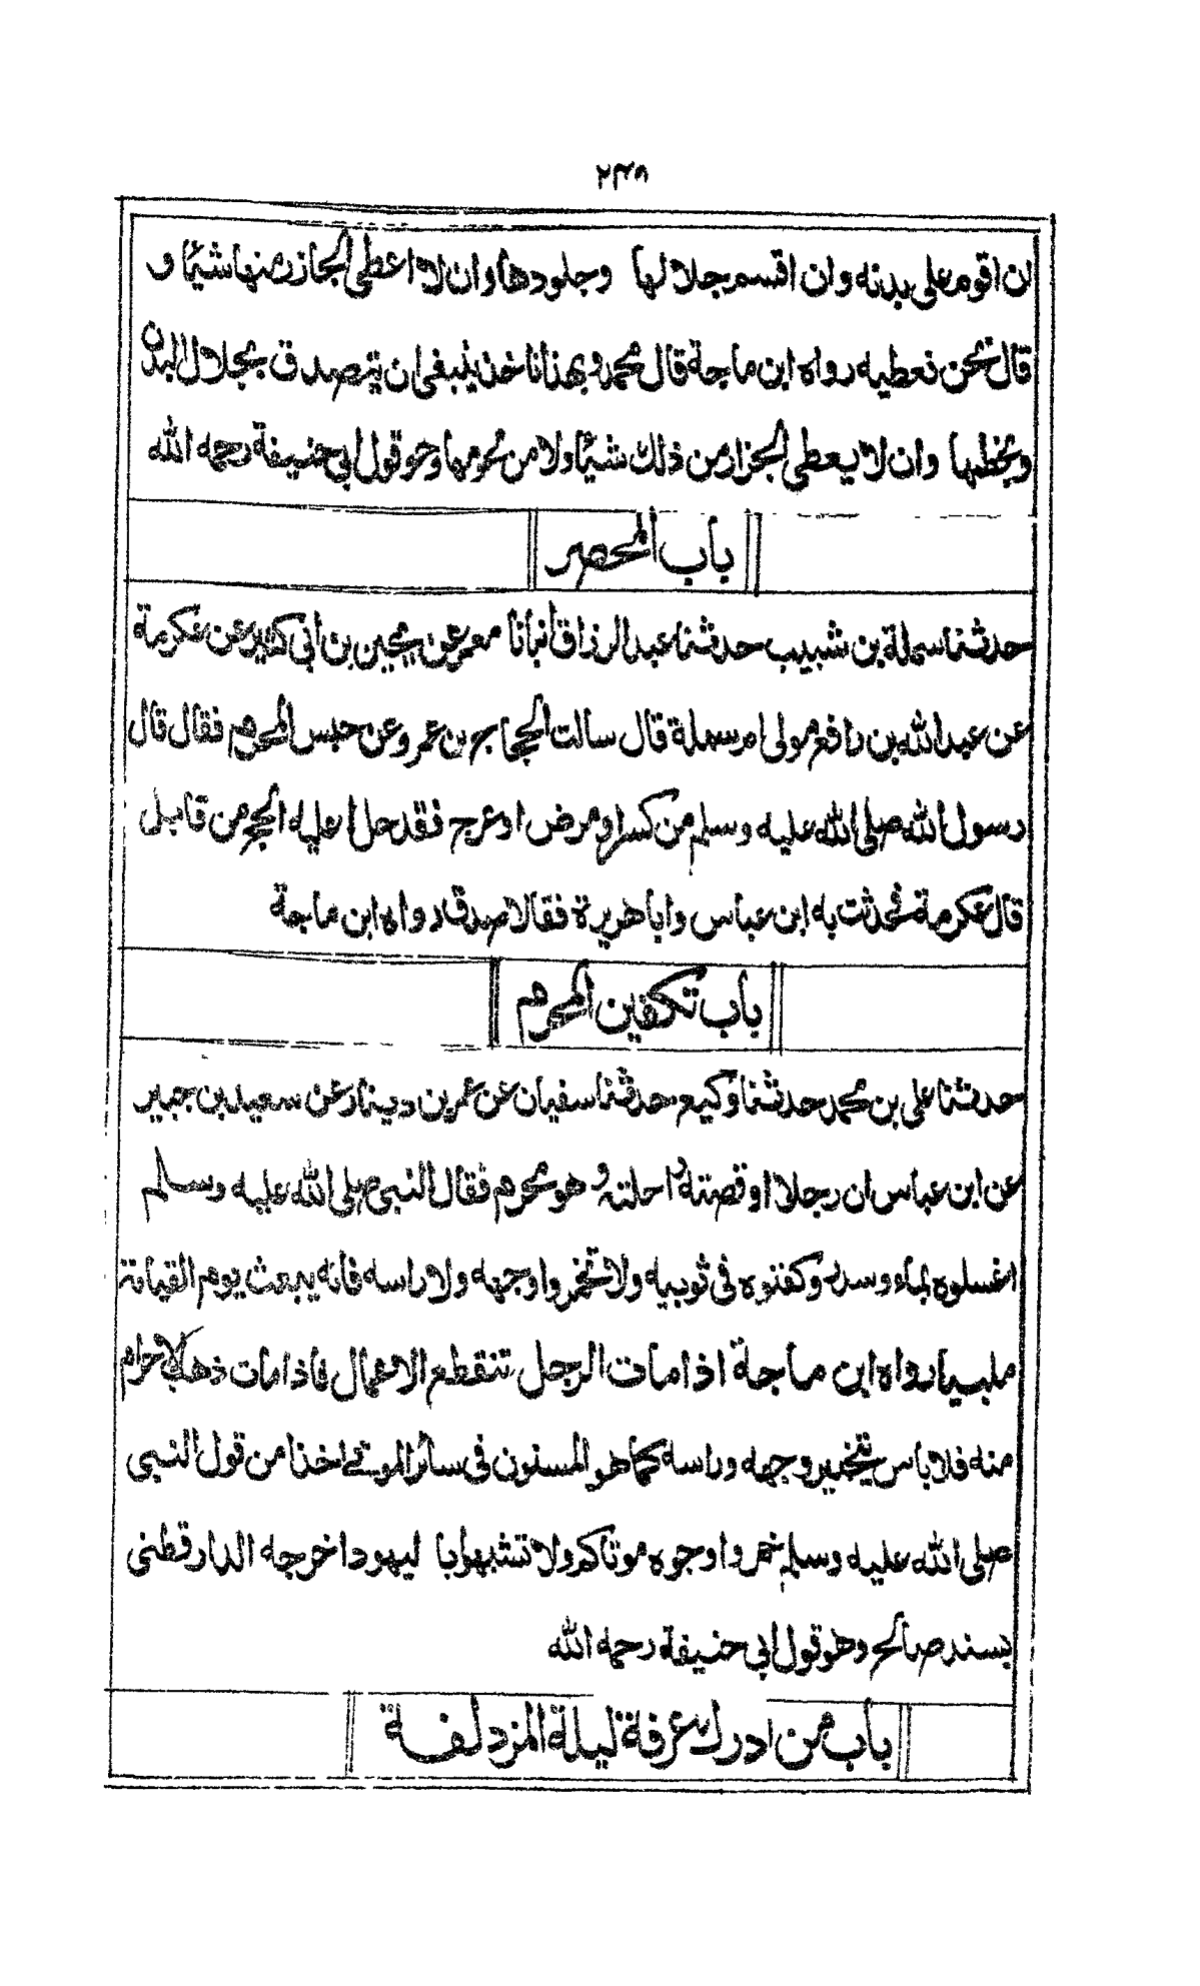 ٢٣٧
ان اقوم على بدنه وان اقسم جلالها وجلودها وان لا اعطى الجازر منها شيئا و
قال نحن نعطيه رواه ابن ماجة قال محمد وبهذا ناخذ ينبغى ان يتصدق بجلال البدن
وبخطمها وان لا يعطى الجزار من ذلك شيئا ولا من لحومها وهو قول ابي حنيفة رحمه الله
باب المحصر
حدثنا سملة بن شبيب حدثنا عبد الرزاق أنبانا معمر عن يحيى بن أبي كثير عن عكرمة
عن عبد الله بن رافع مولى ام سملة قال سالت الحجاج بن عمرو عن حبس المحرم فقال قال
رسول الله صلى الله عليه وسلم من كسر او مرض او عرج فقد حل اعليه الحج من قابل
قال عكرمة فحدثت به ابن عباس وابا هريرة فقالا صدق رواه ابن ماجة
باب تكفين المحرم
حدثنا على بن محمد حدثنا وكيع حدثنا سفيان عن عمر بن دينار عن سعيد بن جبير
عن ابن عباس ان رجلا اوقصته راحلته و هو محرم فقال النبى صلى الله عليه وسلم
اغسلوه بماء وسدر وكفنوه فى ثوبيه ولا تخمروا وجهه ولا راسه فانه يبعث يوم القيامة
ملبيا رواه ابن ماجة اذا مات الرجل تنقطع الاعمال فاذا مات ذهب الاحرام
منه فلا باس بتخمير وجهه وراسه كما هو المسنون فى سائر الموتى اخذا من قول النبى
صلى الله عليه وسلم خمروا وجوه موتاكم ولا تشبهوا با ليهود اخرجه الدارقطنى
بسند صالح وهو قول ابي حنيفة رحمه الله
باب من ادرك عرفة ليلة المزدلفة